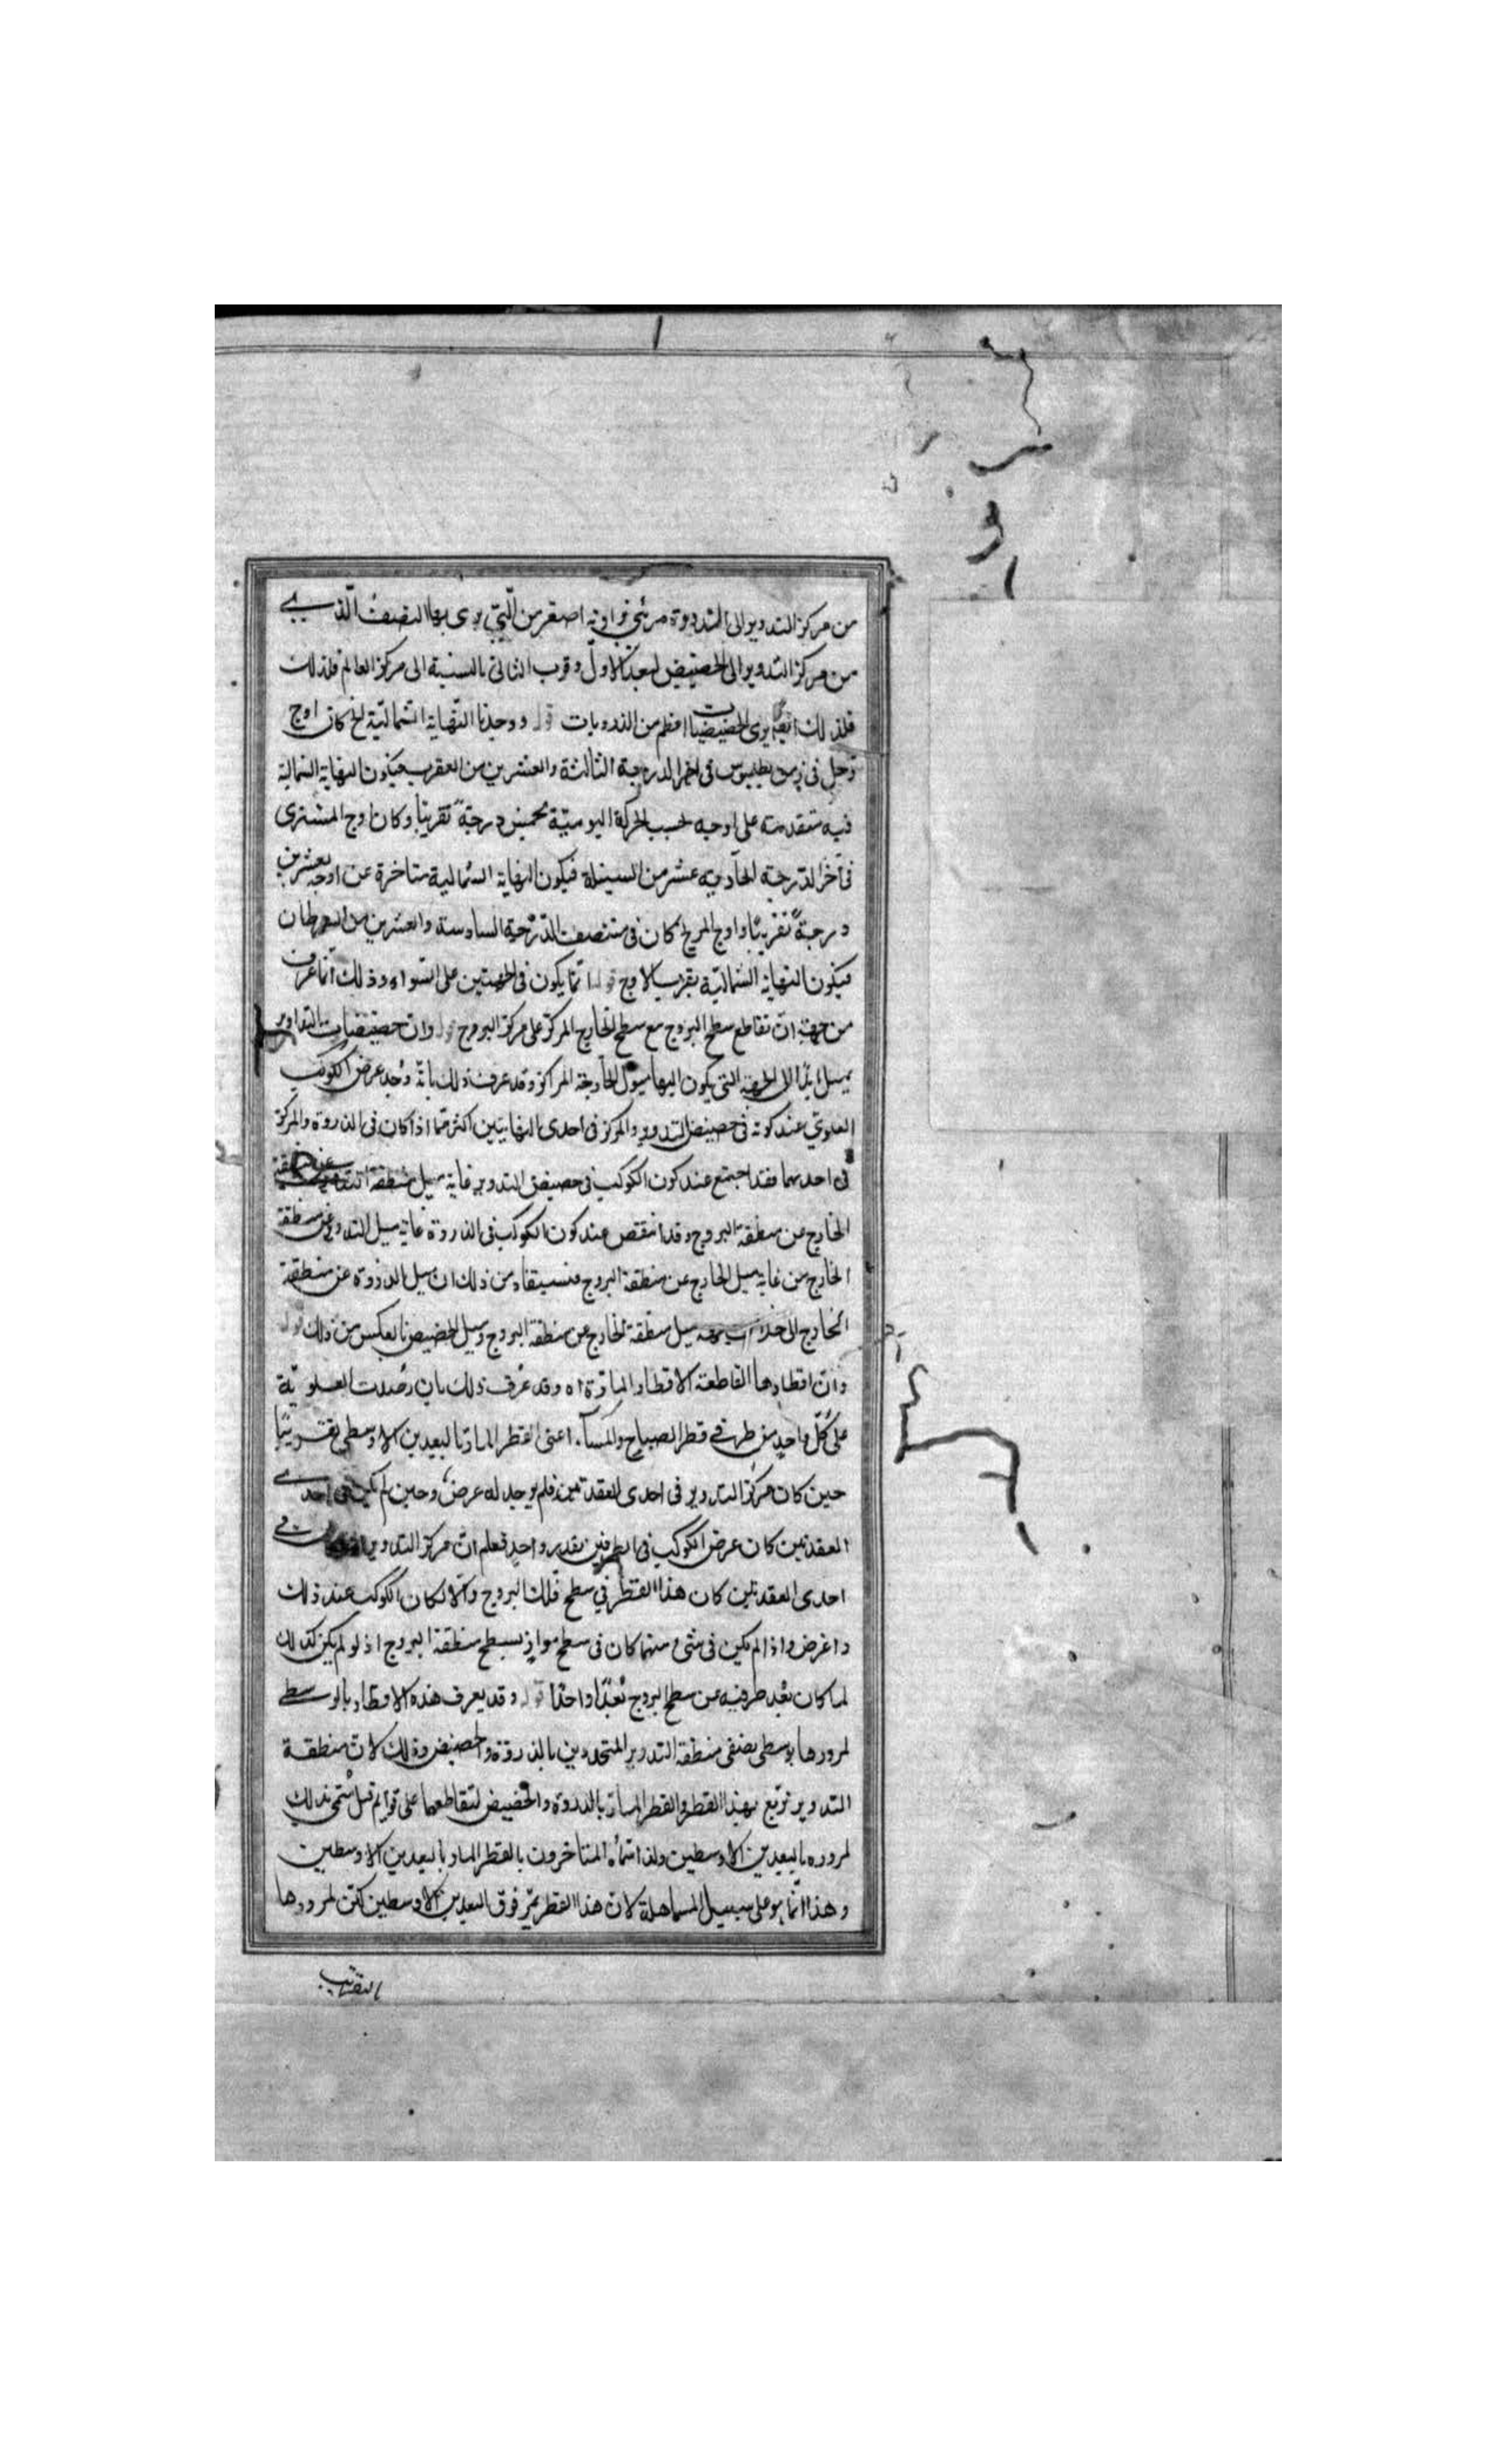 من مركز التدوير الى الذروة مرئي زواوية اصغر من التي يرى بها النصف الذي
من مركز التدوير الى الحضيض لبعد الاول وقرب الثاني بالنسبة الى مركز العالم فلذلك
فلذلك ايضا يرى الحضيضيات اعظم من الذرويات قوله ووجدنا النهاية الشمالية لخ كان اوج
زحل في زمن بطليموس في اخر الدرجة الثالثة والعشرين من العقرب فيكون النهاية الشمالية
فيه متقدمة على اوجه بحسب الحركة اليومية بخمسين درجة تقريبا وكان اوج المشتري
في آخر الدرجة الحادية عشر من السنبلة فيكون النهاية الشمالية متاخرة عن اوجه بعشرين
درجة تقريبًا واوج المريخ كان في منتصف الدرجة السادسة والعشرين من السرطان
فيكون النهاية الشمالية بقرب الاوج قوله انما يكون في الجهتين على السواء وذلك انما عرف
من جهة ان تقاطع سطح البروج مع سطح الخارج المركز على مركز البروج قوله وان حضيضيات التداوير
يميل ابدًا الى الجهة التي يكون اليها ميول الخارجة المراكز وقد عرف ذلك بانه وجد عرض الكوكب
العلوي عند كونه في حضيض التدوير والمركز في احدى النهايتين اكثر مما اذا كان في الذروة والمركز
في احديهما فقد اجتمع عند كون الكوكب في حضيض التدوير غاية ميل منطقة التدوير عن منطقة
الخارج عن منطقة البروج وقد انتقص عند كون الكوكب في الذروة غاية ميل التدوير عن منطقة
الخارج من غاية ميل الخارج عن منطقة البروج فنستفاد من ذلك ان ميل الذروة عن منطقة
الخارج الى خلاف جهة ميل منطقة الخارج عن منطقة البروج وميل الحضيض بالعكس من ذلك قوله
وان اقطارها القاطعة الاقطار المارة اه وقد عرف ذلك بان رصدت العلوية
على كل واحد من طرفي قطر الصباح والمساء اعنى القطر المار بالبعدين الاوسطى تقريبًا
حين كان مركز التدوير في احدى العقدتين فلم يوجد له عرض وحين لم يكن في احدى
العقدتين كان عرض الكوكب في الطرفين بقدر واحد فعلم ان مركز التدوير في
احدى العقدتين كان هذا القطر في سطح فلك البروج والا لكان الكوكب عند ذلك
ذا عرض واذا لم يكن في شيء منهما كان في سطح مواز بسطح منطقة البروج اذ لو لم يكن كذلك
لما كان بعد طرفيه عن سطح البروج بعدًا واحدًا قوله وقد يعرف هذه الاقطار بالوسطى
لمرورها بوسطى نصفى منطقة التدوير المتحددين بالذروة والحضيض وذلك لان منطقة
التدوير تربع بهذا القطر والقطر المار بالذروة والحضيض لتقاطعهما على قوايم قيل سمى بذلك
لمروره بالبعدين الاوسطين ولذا سماه المتاخرون بالقطر المار بالبعدين الاوسطين
وهذا انما هو على سبيل المساهلة لان هذا القطر يمر فوق البعدين الاوسطين لكن لمرورها
التقريب